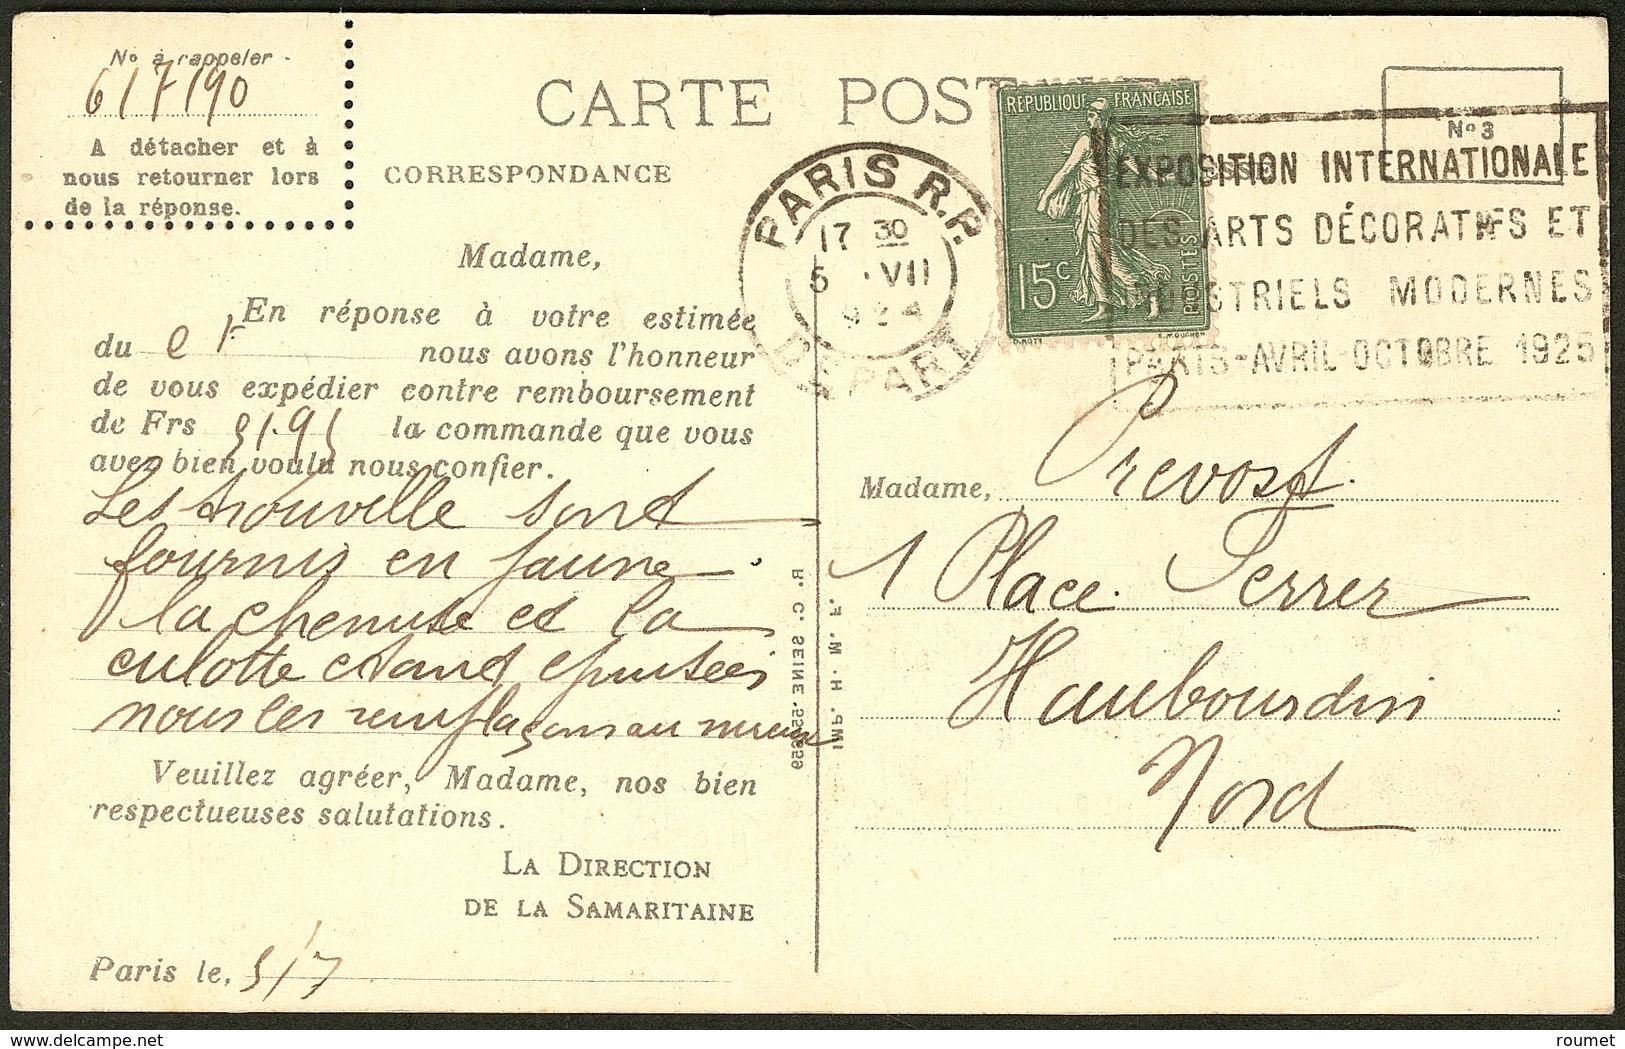 No à rappeler
617190
A détacher et à
nous retourner lors
de la réponse.
CARTE POST
CORRESPONDANCE
N° 3
RÉPUBLIQUE FRANÇAISE
15c
POSTES
PARIS R.P.
17 30
5 VII
924
DEPART
EXPOSITION INTERNATIONALE
DES ARTS DÉCORATIFS ET
INDUSTRIELS MODERNES
PARIS-AVRIL-OCTOBRE 1925
Madame,
En réponse à votre estimée
du nous avons l'honneur
de vous expédier contre remboursement
de Frs 51.95 la commande que vous
avez bien voulu nous confier.
Les nouvelle sont
fournis en jaune
la chemise et la
culotte etant epuisées
nous les remplaçons au mieux
Veuillez agréer, Madame, nos bien
respectueuses salutations.
LA DIRECTION
DE LA SAMARITAINE
Paris le, 5/7
Madame, Prevost.
1 Place Ferrer
Haubourdin
Nord
R. C. SEINE.
IMP. H. M. F.
roumet
delcampe.net